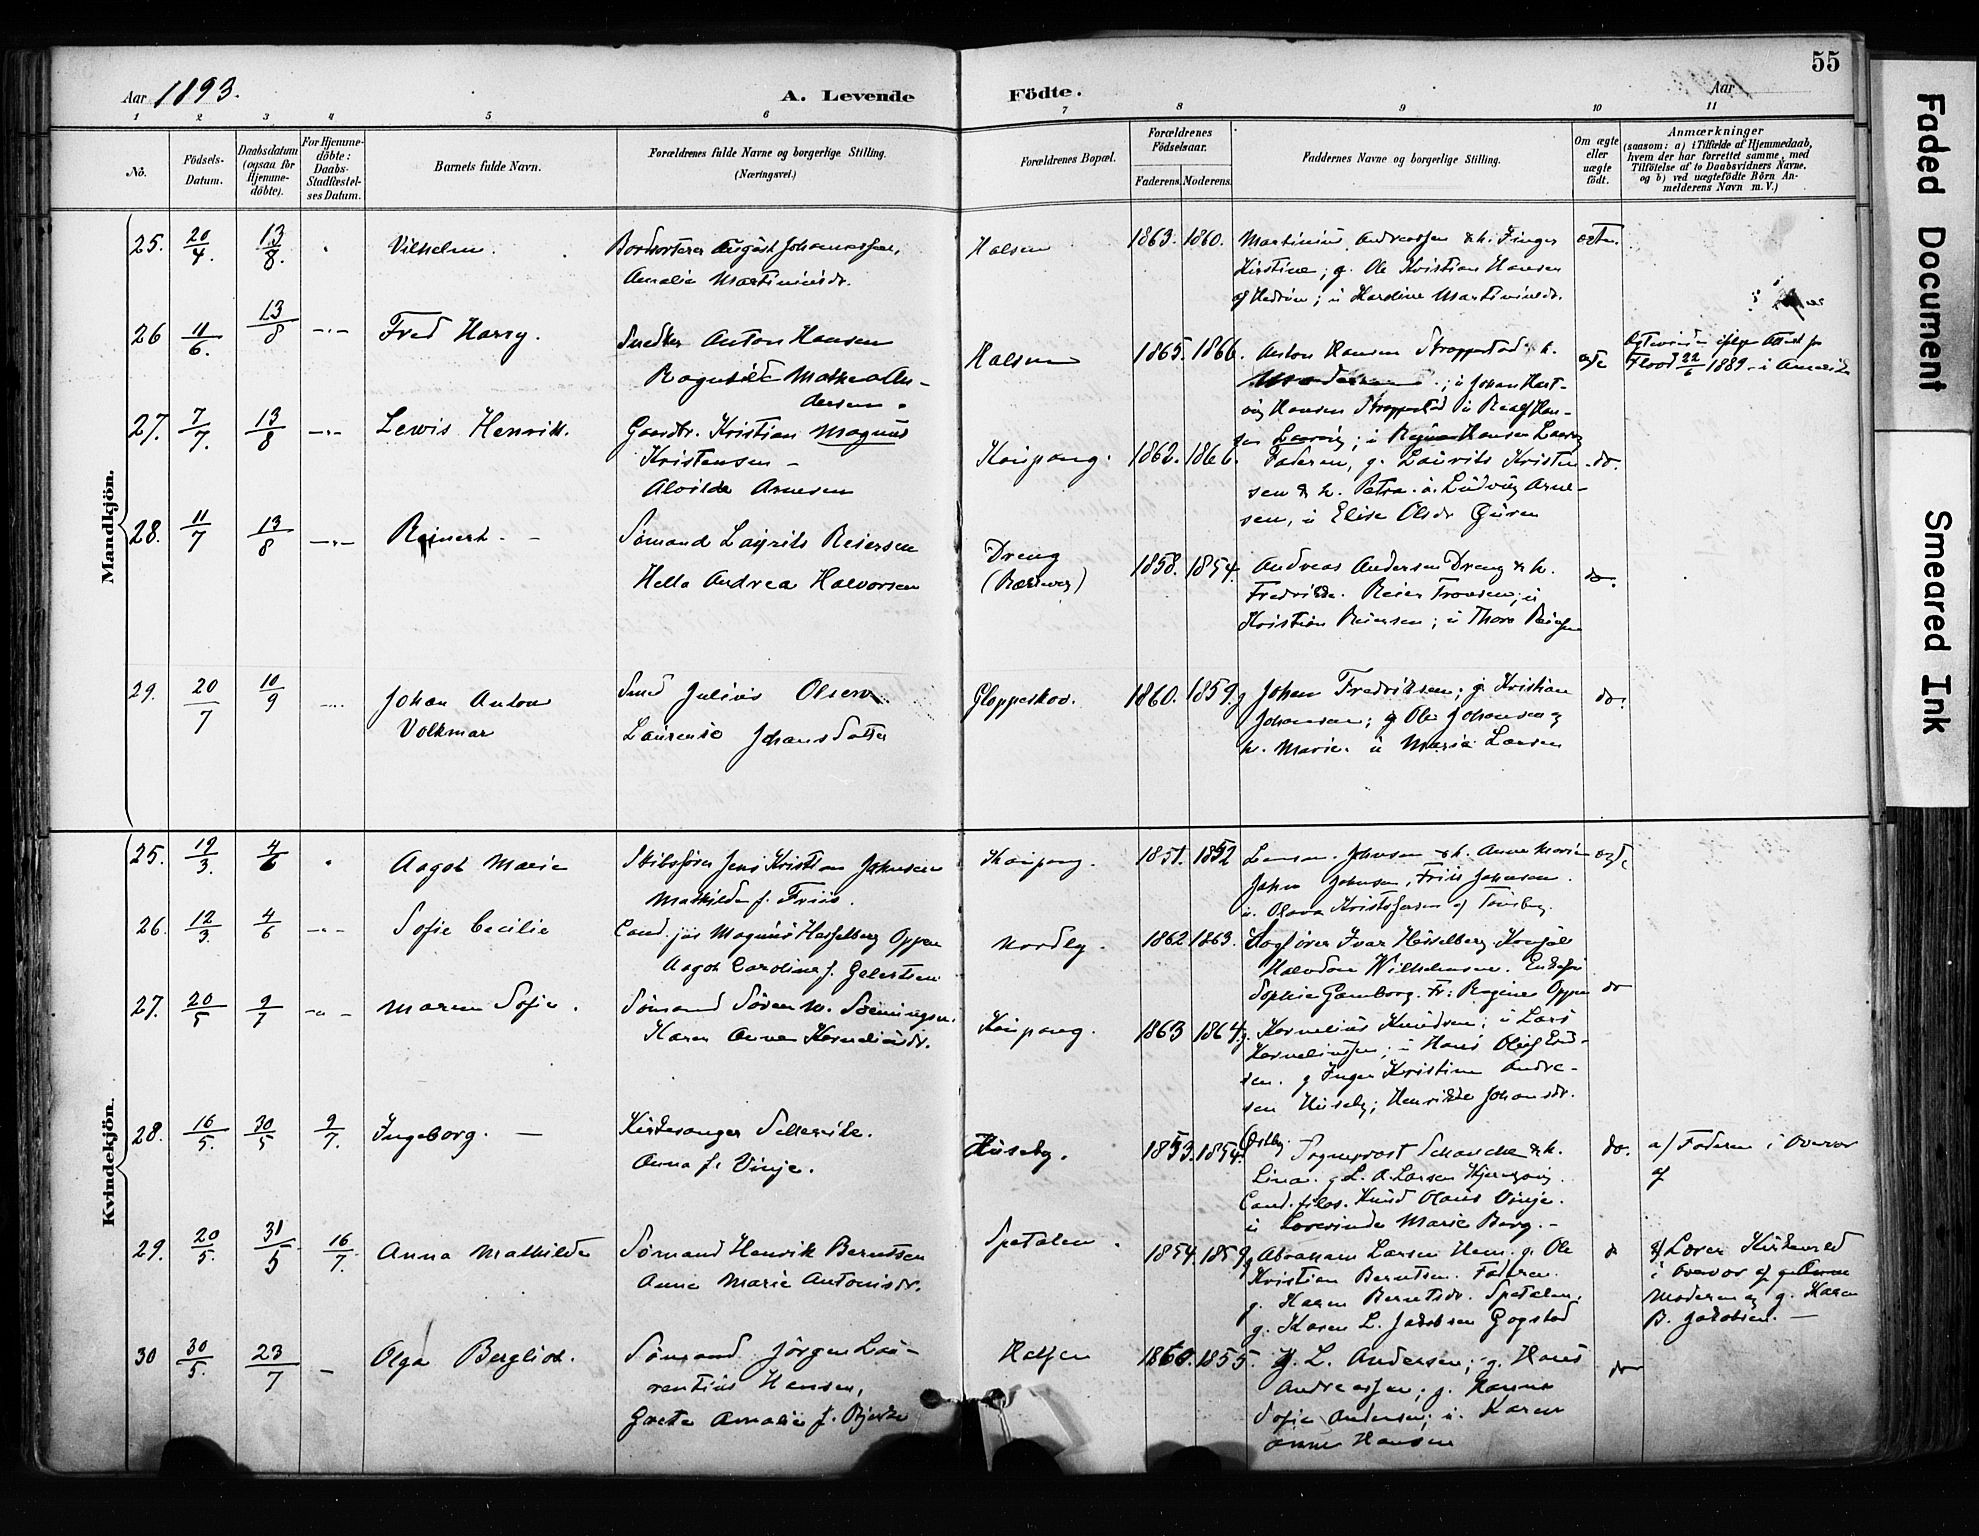 55
Aar 1893.
A. Levende
Födte.
Aar
1 2 3 4 5 6 7 8 9 10 11
No.
Födsels-
Datum.
Daabsdatum
(ogsaa för
Hjemme-
döbte).
For Hjemme-
döbte:
Daabs-
Stadfæstel-
ses Datum.
Barnets fulde Navn.
Forældrenes fulde Navne og borgerlige Stilling.
(Næringsvei.)
Forældrenes Bopæl.
Forældrenes
Födselsaar.
Faderens. Moderens.
Faddernes Navne og borgerlige Stilling.
Om ægte
eller
uægte
födt.
Anmærkninger
(saasom: a) i Tilfælde af Hjemmedaab,
hvem der har forrettet samme, med
Tilföielse af to Daabsvidners Navne.
og b) ved uægtefödte Börn An-
melderens Navn m. V.)
Mandkjön.
25. 20/4. 13/8. Vilhelm.
August Johannessen,
Amalie Martinusdr.
Halsen 1863. 1860.
Martinius Andreassen & h. Inger
Kirstine; g. Ole Kristian Hansen
af Hedrum; u Kardine Martinusdr.
ægte.
26 11/6. 13/8 Fred Harry.
Snedker Anton Hansen
Ragnhild Mathea An-
dersen.
Halsen 1865. 1866.
Anton Hansen & h.
; u Johan Hart-
vig Hansen u Han-
sen Laurvig; u Hansen Laurvig
ægte
22/6 1889 i Amerika
27. 7/7. 13/8 Lewis Henrik.
Gaardbr. Kristian Magnus
Kristensen –
Alvilde Arnesen
Kaupang. 1862. 1866.
Faderen, g. Laurits Kristen-
sen & h. Petra. u. Ludvig Arne-
sen, u Elise Olsdr
do.
28. 11/7 13/8 Reinert
Sømand Laurits Reiersen
Hella Andrea Halvorsen
Dreng
1858. 1854.
Andreas Andersen Dreng & h.
Fredrikke. Reier Tronsen; u
Kristian Reiersen; u Thora
do.
29. 20/7 10/9
Johan Anton
Volkmar
Smed Julius Olsen
Laurense Johansdatter
Gloppeskov. 1860. 1859.
g Johan Fredriksen; g. Kristian
Johansen; g Ole Johansen &
h. Marie. u Maria Larsen
do.
Kvindekjön.
25. 19/3. 4/6 Aagot Marie
Skibsfører Jens Kristian Johnsen
Mathilde f. Friis.
Kaupang. 1851. 1852
Johnsen & h. Anne Marie
John Johnsen, Friis Johnsen.
u. Olava Kristofersen af Tønsberg.
ægte
26. 12/3. 4/6 Sofie Cecilie
Cand. jur Magnus Hesselberg Oppen
Aagot Caroline f.
Nordby. 1862 1863.
Sagfører Ivar Hesselberg. Konsul
Halvdan Wilhelmsen. Enkefru
Sophie Gamborg. Fr: Regine Oppen
do
27. 20/5 9/7 Maren Sofie.
Sømand Søren M.
Karen Anne Korneliusdr.
Kaupang. 1863 1864.
g. Kornelius Knudsen; u Lars
Korneliussen; u Hans Oluf
g Inger Kristine Andre-
sen Huseby; Henrikke Johansdr.
28. 16/5. 30/5 9/7. Ingeborg. –
Kirkesanger
Anna f. Vinje.
Huseby. 1853. 1854.
Østby. Sogneprost Schanche & h.
Lina. g L. A. Larsen
Cand. filos. Knud Olaus Vinje.
u Lovevinde Marie Berg. –
do. a/ Faderen i Overvær
af
29. 20/5. 31/5 16/7. Anna Mathilde
Sømand Henrik Berntsen
Anne Marie Antonisdr.
Spetalen. 1854. 1859
g Abraham Larsen Hem. g. Ole
Kristian Berntsen. Faderen.
g. Karen Berntsdr. Spetalen.
g. Karen L. Jakobsen Gogstad
a/ Lærer Kirkerød
i overvær af
Moderen og g. Karen
B. Jakobsen. –
30 30/5. 23/7 Olga Bergliot.
Sømand Jørgen Lau-
rentius Hansen,
Grete Amalie f. Bjerke
Halsen 1860. 1855.
g. L. Andersen; g. Hans
Andreassen; g. Hanna
Sofie Andersen; u. Karen
Anne Hansen
do
Faded Document
Smeared Ink